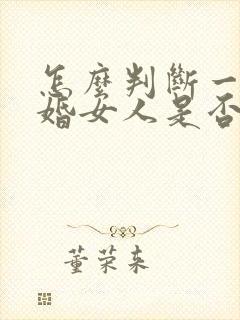 怎麼判斷一
婚女人是否
董荣来